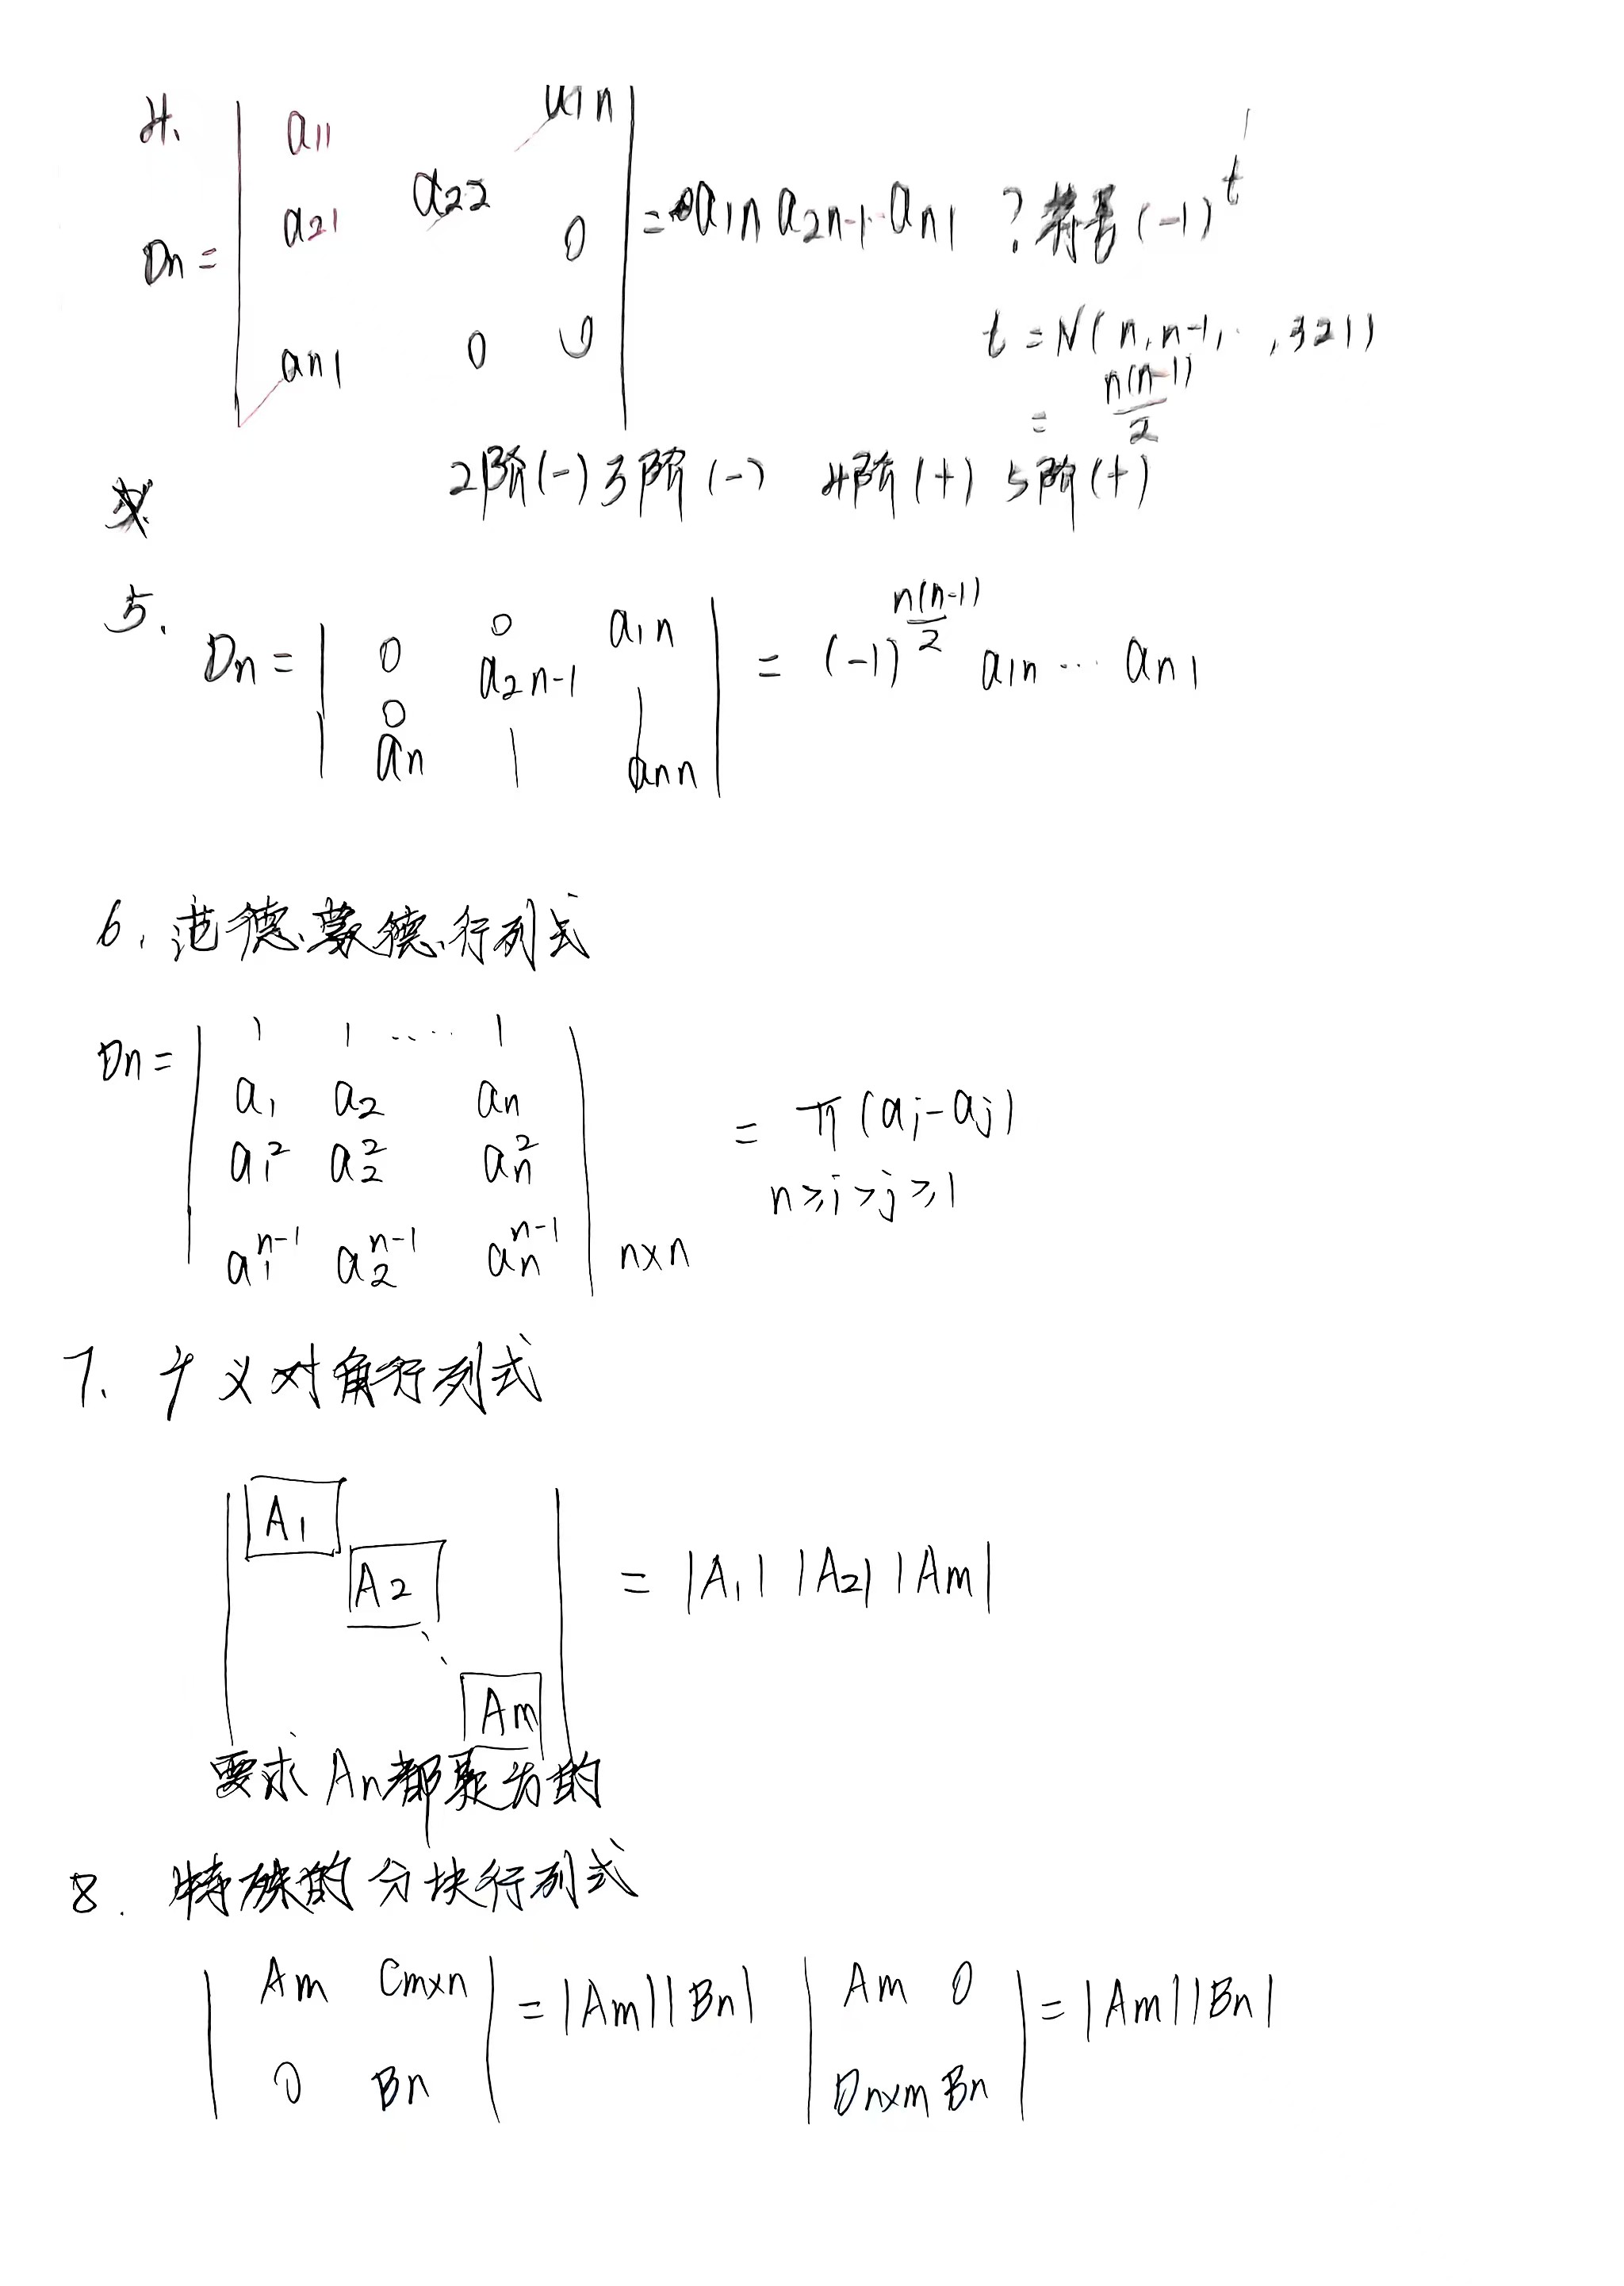 4.
a11 a1n
a21 a22 0
Dn = = a1n a2n-1 · an1 ? 符号 (-1)^t
an1 0 0
t = N(n, n-1, ··, 321)
= n(n-1)/2
2阶(-) 3阶(-) 4阶(+) 5阶(+)
5.
0 0 a1n
Dn = a2n-1 = (-1)^(n(n-1)/2) a1n ··· an1
0
an ann
6. 范德蒙德行列式
Dn =
1 1 ···· 1
a1 a2 an
a1^2 a2^2 an^2
a1^(n-1) a2^(n-1) an^(n-1) n×n
= π (ai - aj)
n≥i>j≥1
7. 广义对角行列式
A1
A2
Am
= |A1| |A2| |Am|
要求 An都是方的
8. 特殊的分块行列式
Am Cm×n
0 Bn
= |Am||Bn|
Am 0
Dn×m Bn
= |Am||Bn|